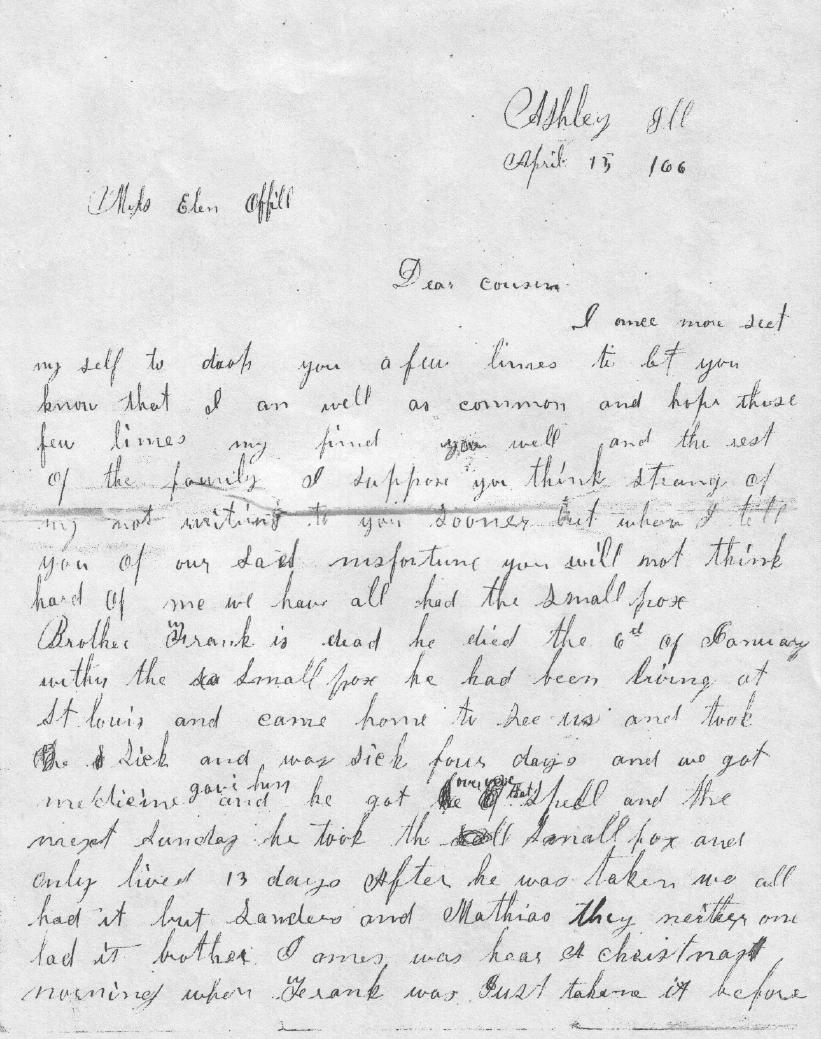 Ashley Ill
April 15 /66
Mrs Elen Offill
Dear cousin
I once more seet
my self to drop you a few lines to let you
know that I am well as common and hope those
few lines my find you well and the rest
of the family I suppose you think strang of
my not writing to you sooner but when I tell
you of our sad misfortune you will not think
hard of me we have all had the small pox
Brother Frank is dead he died the 6th of January
withy the small pox he had been living at
St louis and came home to see us and took
sick and was sick four days and we got
medicine gave him and he got over that spell and the
next sunday he took the small pox and
only lived 13 days After he was taken we all
had it but Sanders and Mathias they neither one
had it brother James was hear At christmast
morning when Frank was Just takene it before